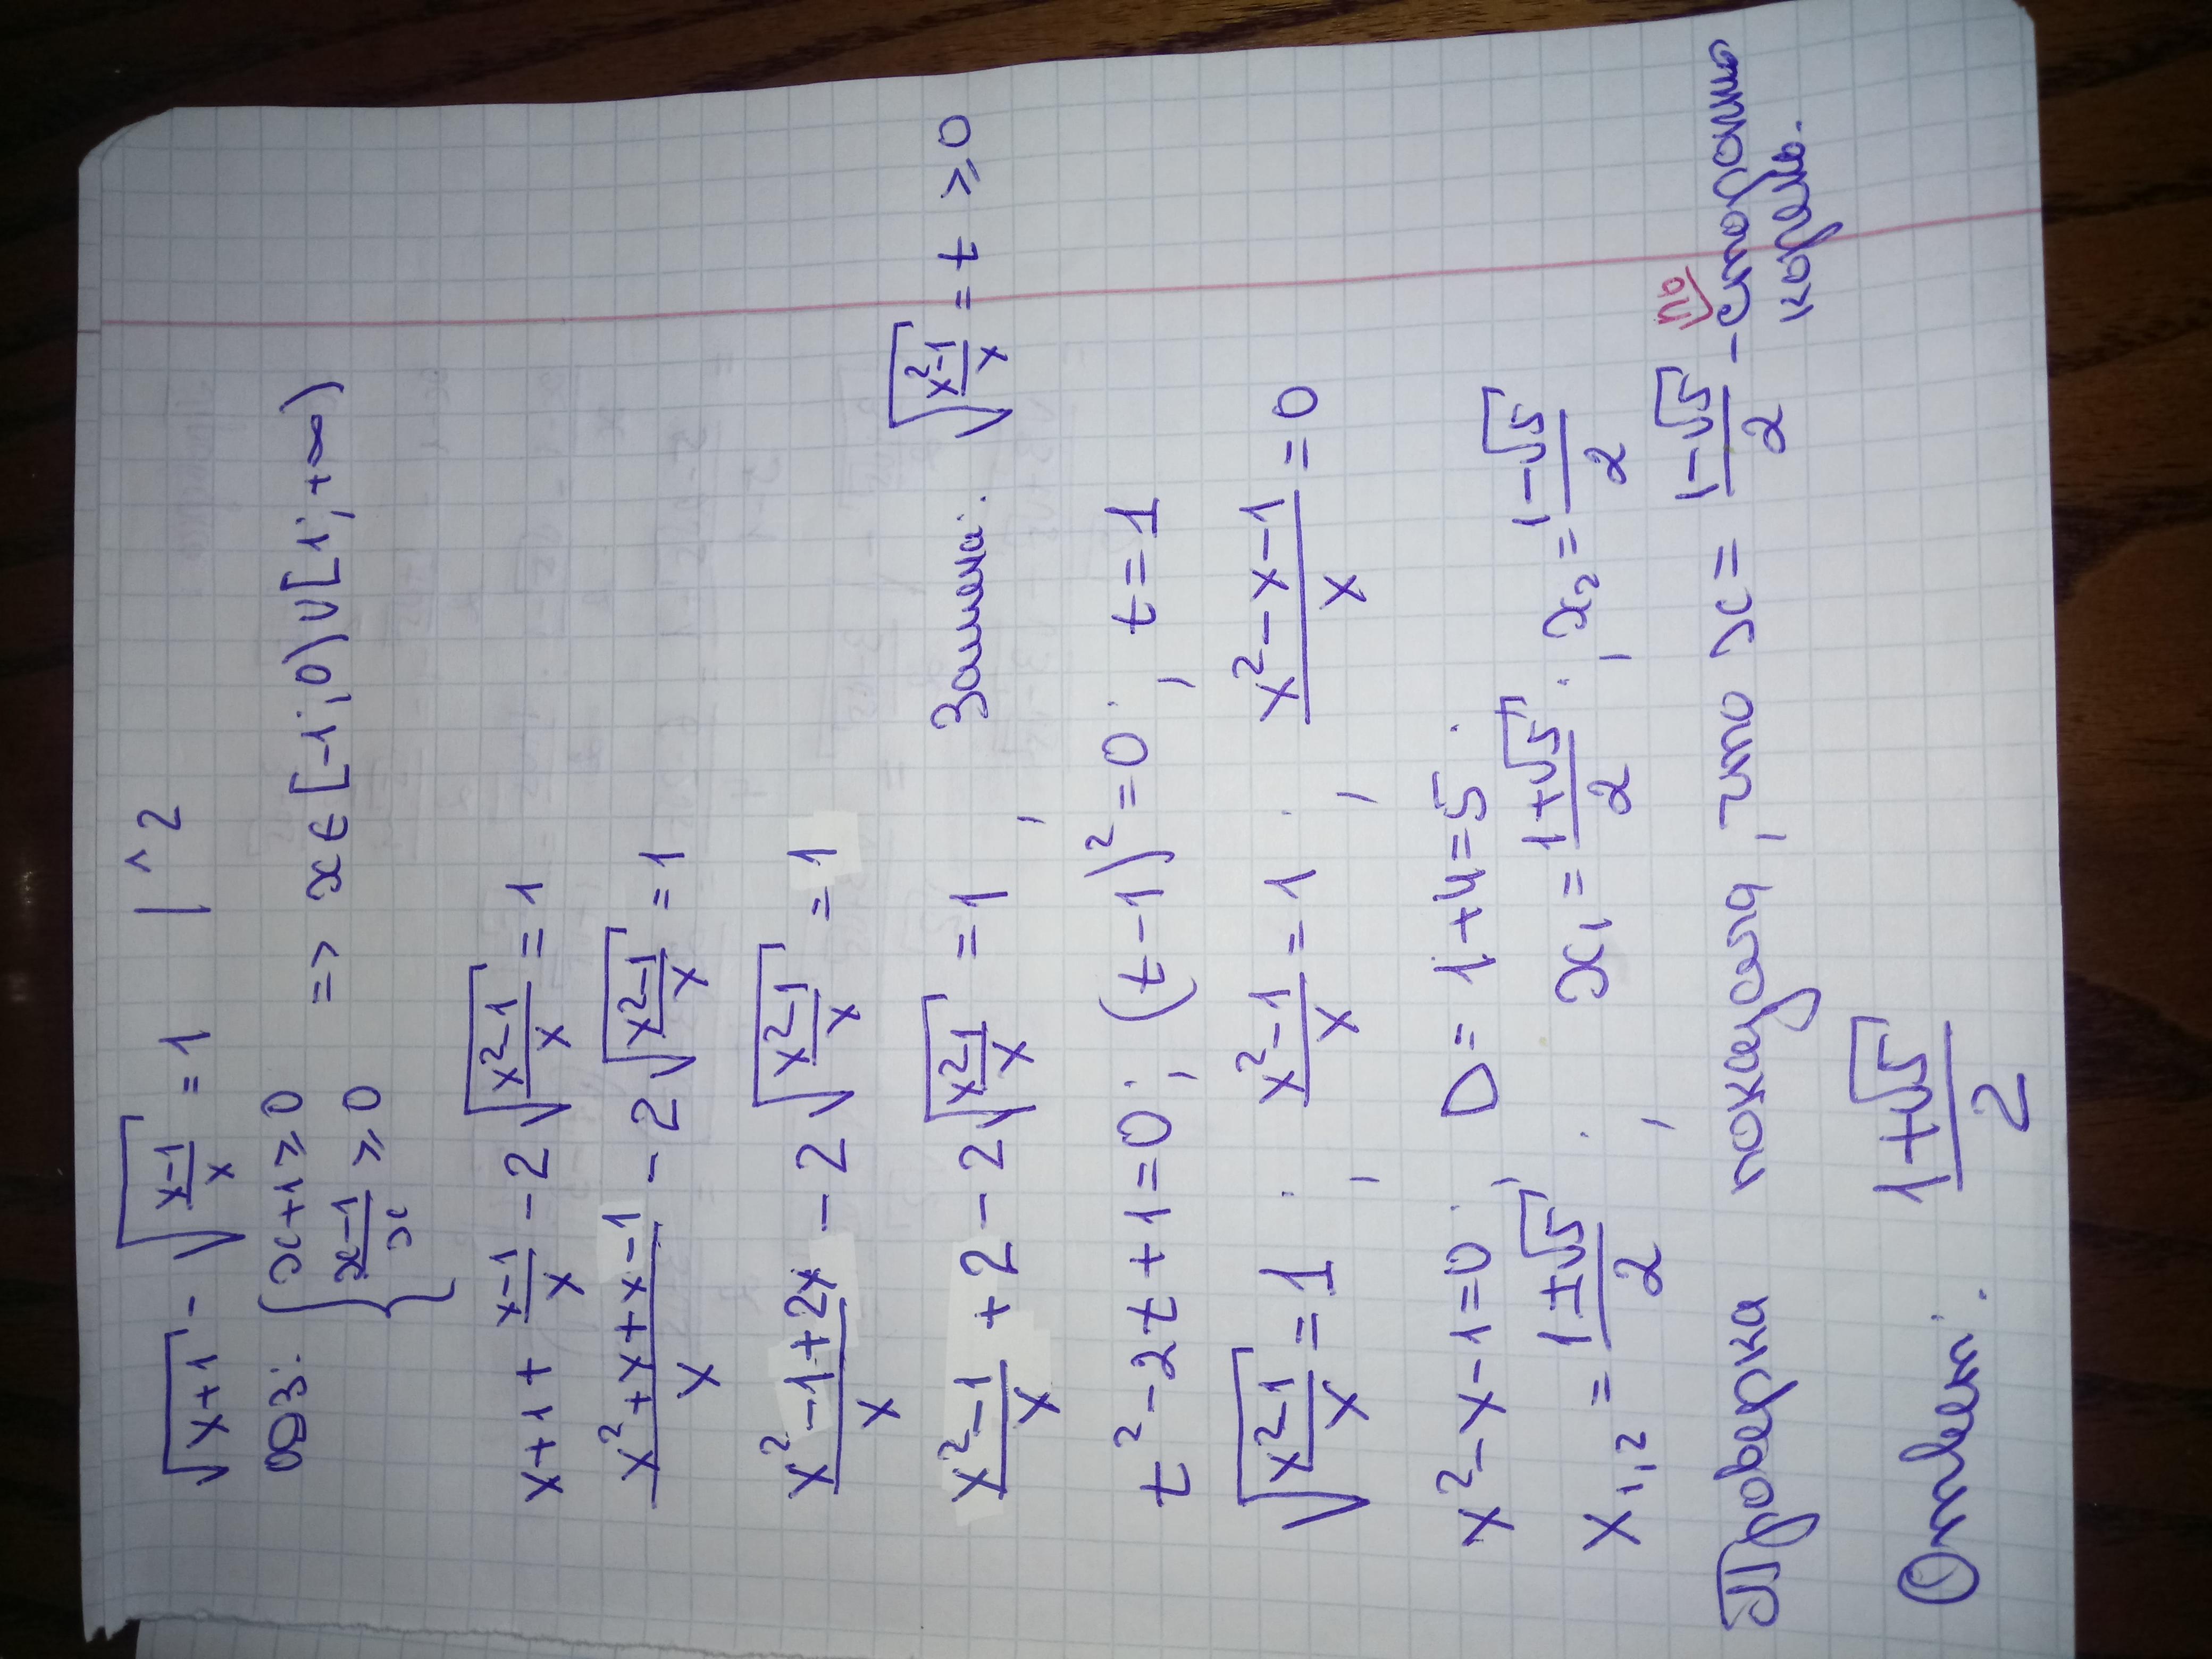 √(x+1) - √((x-1)/x) = 1 | ^ 2
ОДЗ: { x+1 ≥ 0
(x-1)/x ≥ 0 => x ∈ [-1; 0) ∪ [1; +∞)
x+1 + (x-1)/x - 2√((x²-1)/x) = 1
(x²+x+x-1)/x - 2√((x²-1)/x) = 1
(x²-1+2x)/x - 2√((x²-1)/x) = 1
(x²-1)/x + 2 - 2√((x²-1)/x) = 1; Замена: √((x²-1)/x) = t ≥ 0
t² - 2t + 1 = 0; (t-1)² = 0; t = 1
√((x²-1)/x) = 1; (x²-1)/x = 1; (x²-x-1)/x = 0
x² - x - 1 = 0; D = 1+4 = 5;
x₁,₂ = (1±√5)/2; x₁ = (1+√5)/2; x₂ = (1-√5)/2
Проверка показала, что x = (1-√5)/2 - сторонний
корень.
Ответ: (1+√5)/2